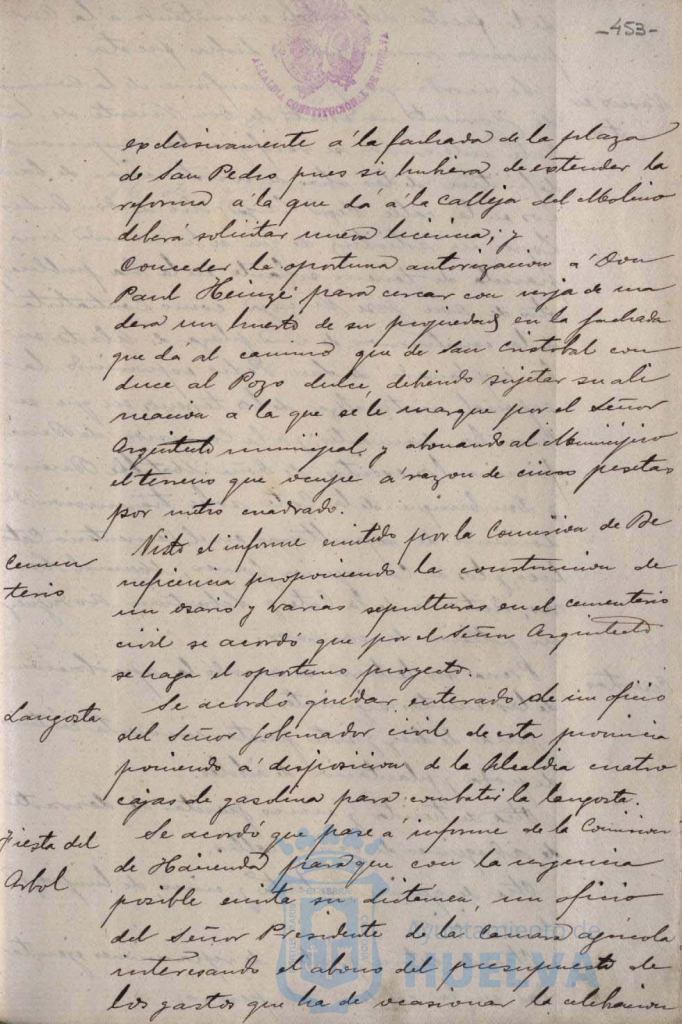 -453-
ALCALDIA CONSTITUCIONAL DE HUELVA
exclusivamente á la fachada de la plaza
de San Pedro pues si hubiera de estender la
reforma á la que dá á la calleja del Molino
deberá solicitar nueva licencia; y
conceder la oportuna autorizacion á Don
Paul Heinze para cercar con verja de ma
dera un huerto de su propiedad en la fachada
que dá al camino que de San Cristobal con
duce al Pozo dulce, debiendo sujetar su ali
neacion á la que se le marque por el Señor
Arquitecto municipal, y abonando al Municipio
el terreno que ocupe á razon de cinco pesetas
por metro cuadrado.
Cemen
terio
Visto el informe emitido por la Comision de Be
neficencia proponiendo la construccion de
un osario y varias sepulturas en el cementerio
civil se acordó que por el Señor Arquitecto
se haga el oportuno proyecto.
Langosta
Se acordó quedar enterado de un oficio
del Señor Gobernador civil de esta provincia
poniendo á disposicion de la Alcaldia cuatro
cajas de gasolina para combatir la langosta.
Fiesta del
Arbol
Se acordó que pase á informe de la Comision
de Hacienda para que con la urgencia
posible emita su dictamen, un oficio
del Señor Presidente de la Camara agricola
interesando el abono del presupuesto de
los gastos que ha de ocasionar la celebracion
Ayuntamiento de
HUELVA